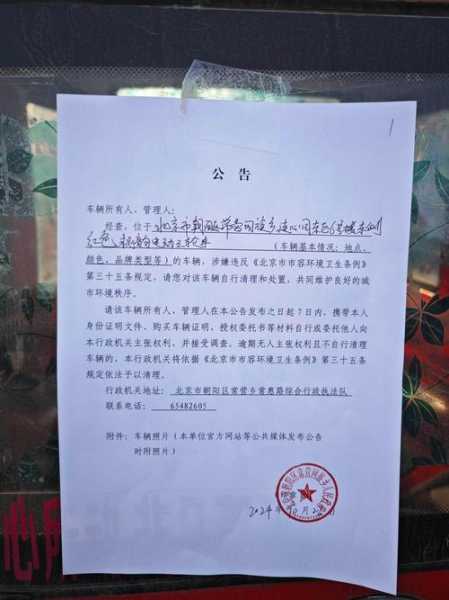 1
公 告
车辆所有人、管理人：
经查，位于北京市朝阳区常营回族乡
红色 电动三轮车 （车辆基本情况：地点、
颜色、品牌类型等）的车辆，涉嫌违反《北京市市容环境卫生条例》
第三十五条规定，请您对该车辆自行清理和处置，共同维护良好的城
市环境秩序。
请该车辆所有人、管理人在本公告发布之日起 7 日内，携带本人
身份证明文件、购买车辆证明、授权委托书等材料自行或委托他人向
本行政机关主张权利，并接受调查。逾期无人主张权利且不自行清理
车辆的，本行政机关将依据《北京市市容环境卫生条例》第三十五条
规定依法予以清理。
行政机关地址：北京市朝阳区常营乡常惠路综合行政执法队
联系电话：65482605
附件：车辆照片（本单位官方网站等公共媒体发布公告
时附照片）
2024年 月 日
心